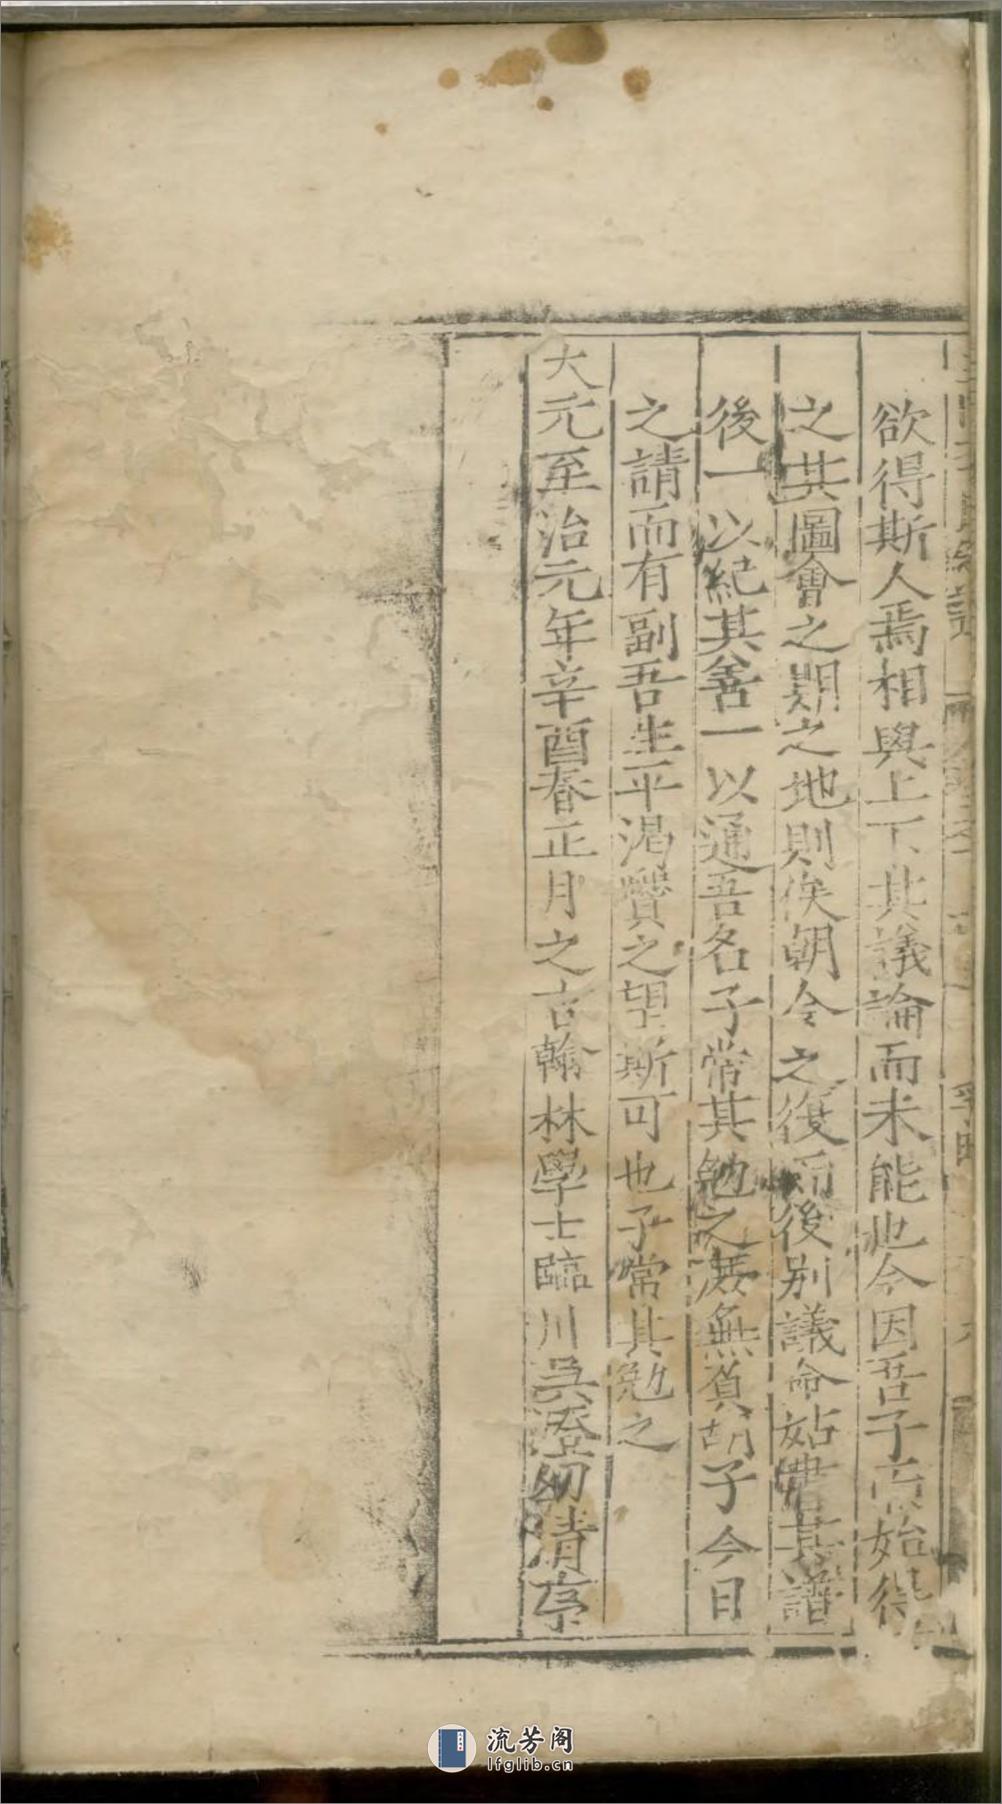 欲得斯人焉相與上下其議論而未能也今因吾子而始得
之其圖會之期之地則俟朝令之後而後別議命姑書其譜
後一以紀其善一以通吾名子常其勉之庶無負胡子今日
之請而有副吾生平渴響之望斯可也子常其勉之
大元至治元年辛酉春正月之吉翰林學士臨川吳澄幼清序
流芳阁
lfglib.cn